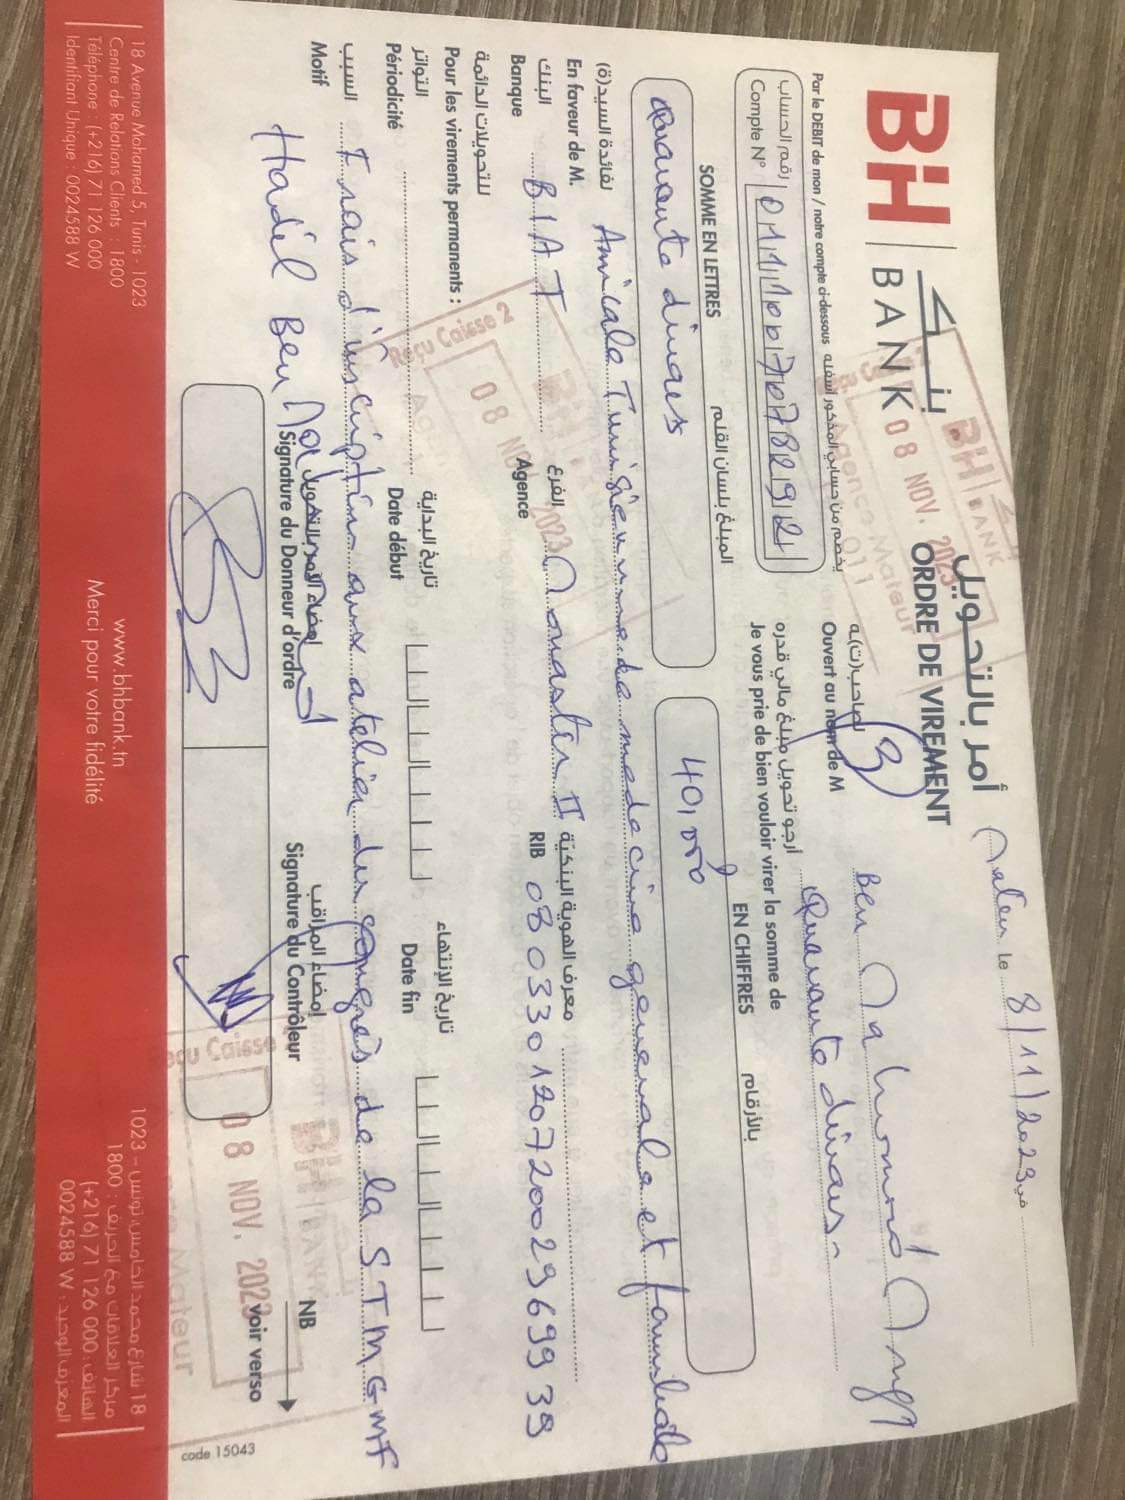 BH | بنك
BANK
أمر بالتحويل
ORDRE DE VIREMENT
le 8/11/2023 في
Par le DEBIT de mon / notre compte ci-dessous يخصم من حسابي المذكور أسفله
رقم الحساب
Compte N°
صاحب(ت)ه
Ouvert au nom de M
Ben
أرجو تحويل مبلغ مالي قدره
Je vous prie de bien vouloir virer la somme de
Quarante dinars
SOMME EN LETTRES المبلغ بلسان القلم
EN CHIFFRES بالأرقام
Quarante dinars
40,000
لفائدة السيد(ة)
En faveur de M.
Amicale Tunisienne de medecine generale et familiale
البنك
Banque
BIAT
الفرع
Agence
Monastir II
معرف الهوية البنكية
RIB 08033012072002969939
للتحويلات الدائمة
Pour les virements permanents :
التواتر
Périodicité
تاريخ البداية
Date début
تاريخ الإنتهاء
Date fin
السبب
Motif
Frais d'inscription aux atelier du congrès de la STMGMF
Hadél Ben
Signature du Donneur d'ordre
إمضاء المراقب
Signature du Contrôleur
NB
voir verso
code 15043
BH BANK
08 NOV. 2023
Agence Mateur
011
Reçu Caisse 2
08 NOV 2023
Reçu Caisse
BH BANK
08 NOV. 2023
Mateur
18 Avenue Mohamed 5, Tunis - 1023
Centre de Relations Clients : 1800
Téléphone : (+216) 71 126 000
Identifiant Unique : 0024588 W
www.bhbank.tn
Merci pour votre fidélité
18 شارع محمد الخامس، تونس – 1023
مركز العلاقات مع الحريف : 1800
الهاتف : 000 126 71 (216+)
المعرف الوحيد : 0024588 W